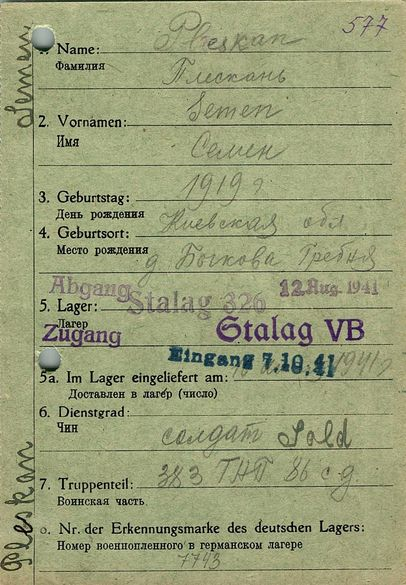 577
Semen
1. Name: Pleskan
Фамилия
Плескань
Semen
2. Vornamen:
Имя
Семен
3. Geburtstag: 1919 г
День рождения
Киевская обл
4. Geburtsort:
Место рождения
д. Гребня
Abgang
Stalag 326
12. Aug. 1941
5. Lager:
Лагерь
Zugang
Stalag VB
Eingang 7.10.41
5a. Im Lager eingeliefert am: 1941
Доставлен в лагéр (число)
6. Dienstgrad:
Чин
солдат Sold
7. Truppenteil: 383 86 сд
Воинская часть.
Pleskan
o. Nr. der Erkennungsmarke des deutschen Lagers:
Номер военнопленного в германском лагере
7743